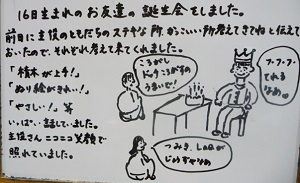 16日生まれのお友達の誕生会をしました。
前日に主役のともだちのステキな所、かっこいい所考えてきてねと伝えて
おいたので、それぞれ考えて来てくれました。
「積木が上手!」
「ぬり絵がきれい!」
「やさしい!」等
いっぱい話していました。
主役さんニコニコ笑顔で
照れていました。
ころがし
ドッヂころがすの
うまいで!
フ・フ・フ・フ
てれる
なぁ。
つみき、LaQが
じょうずやなぁ